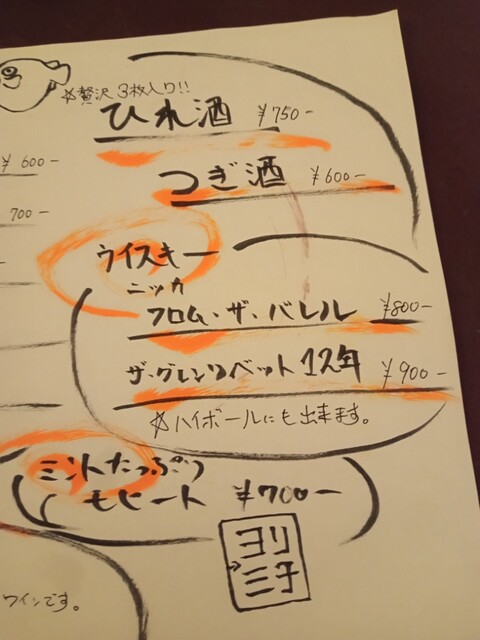 ☆贅沢3枚入り!!
ひれ酒 ¥750-
¥600-
つぎ酒 ¥600-
700-
ウイスキー
ニッカ
フロム・ザ・バレル ¥800-
ザ・グレンリベット12年 ¥900-
☆ハイボールにも出来ます。
ミントたっぷり
モヒート ¥700-
ヨリ
ミチ
ワインです。